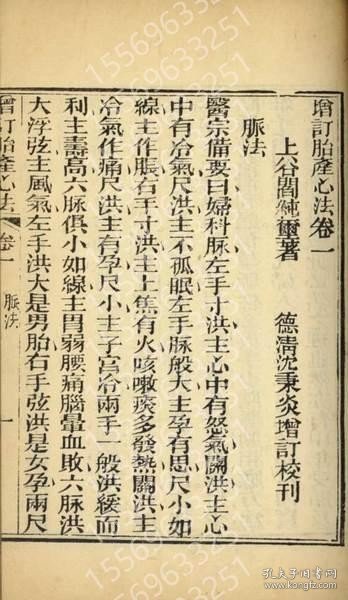 增訂胎產心法卷一
上谷閻純璽著　德清沈秉炎增訂校刊
脈法
醫宗備要曰婦科脈左手寸洪主心中有怒氣關洪主心
中有冷氣尺洪主不孤眠左手脈般大主孕有思尺小如
線主作脹右手寸洪主上焦有火咳嗽痰多發熱關洪主
冷氣作痛尺洪主有孕尺小主子宮冷兩手一般洪緩而
利主壽高六脈俱小如線主胃弱腰痛腦暈血敗六脈洪
大浮弦主風氣左手洪大是男胎右手弦洪是女孕兩尺
增訂胎產心法
卷一
脈法
一
15569633251
孔夫子旧书网